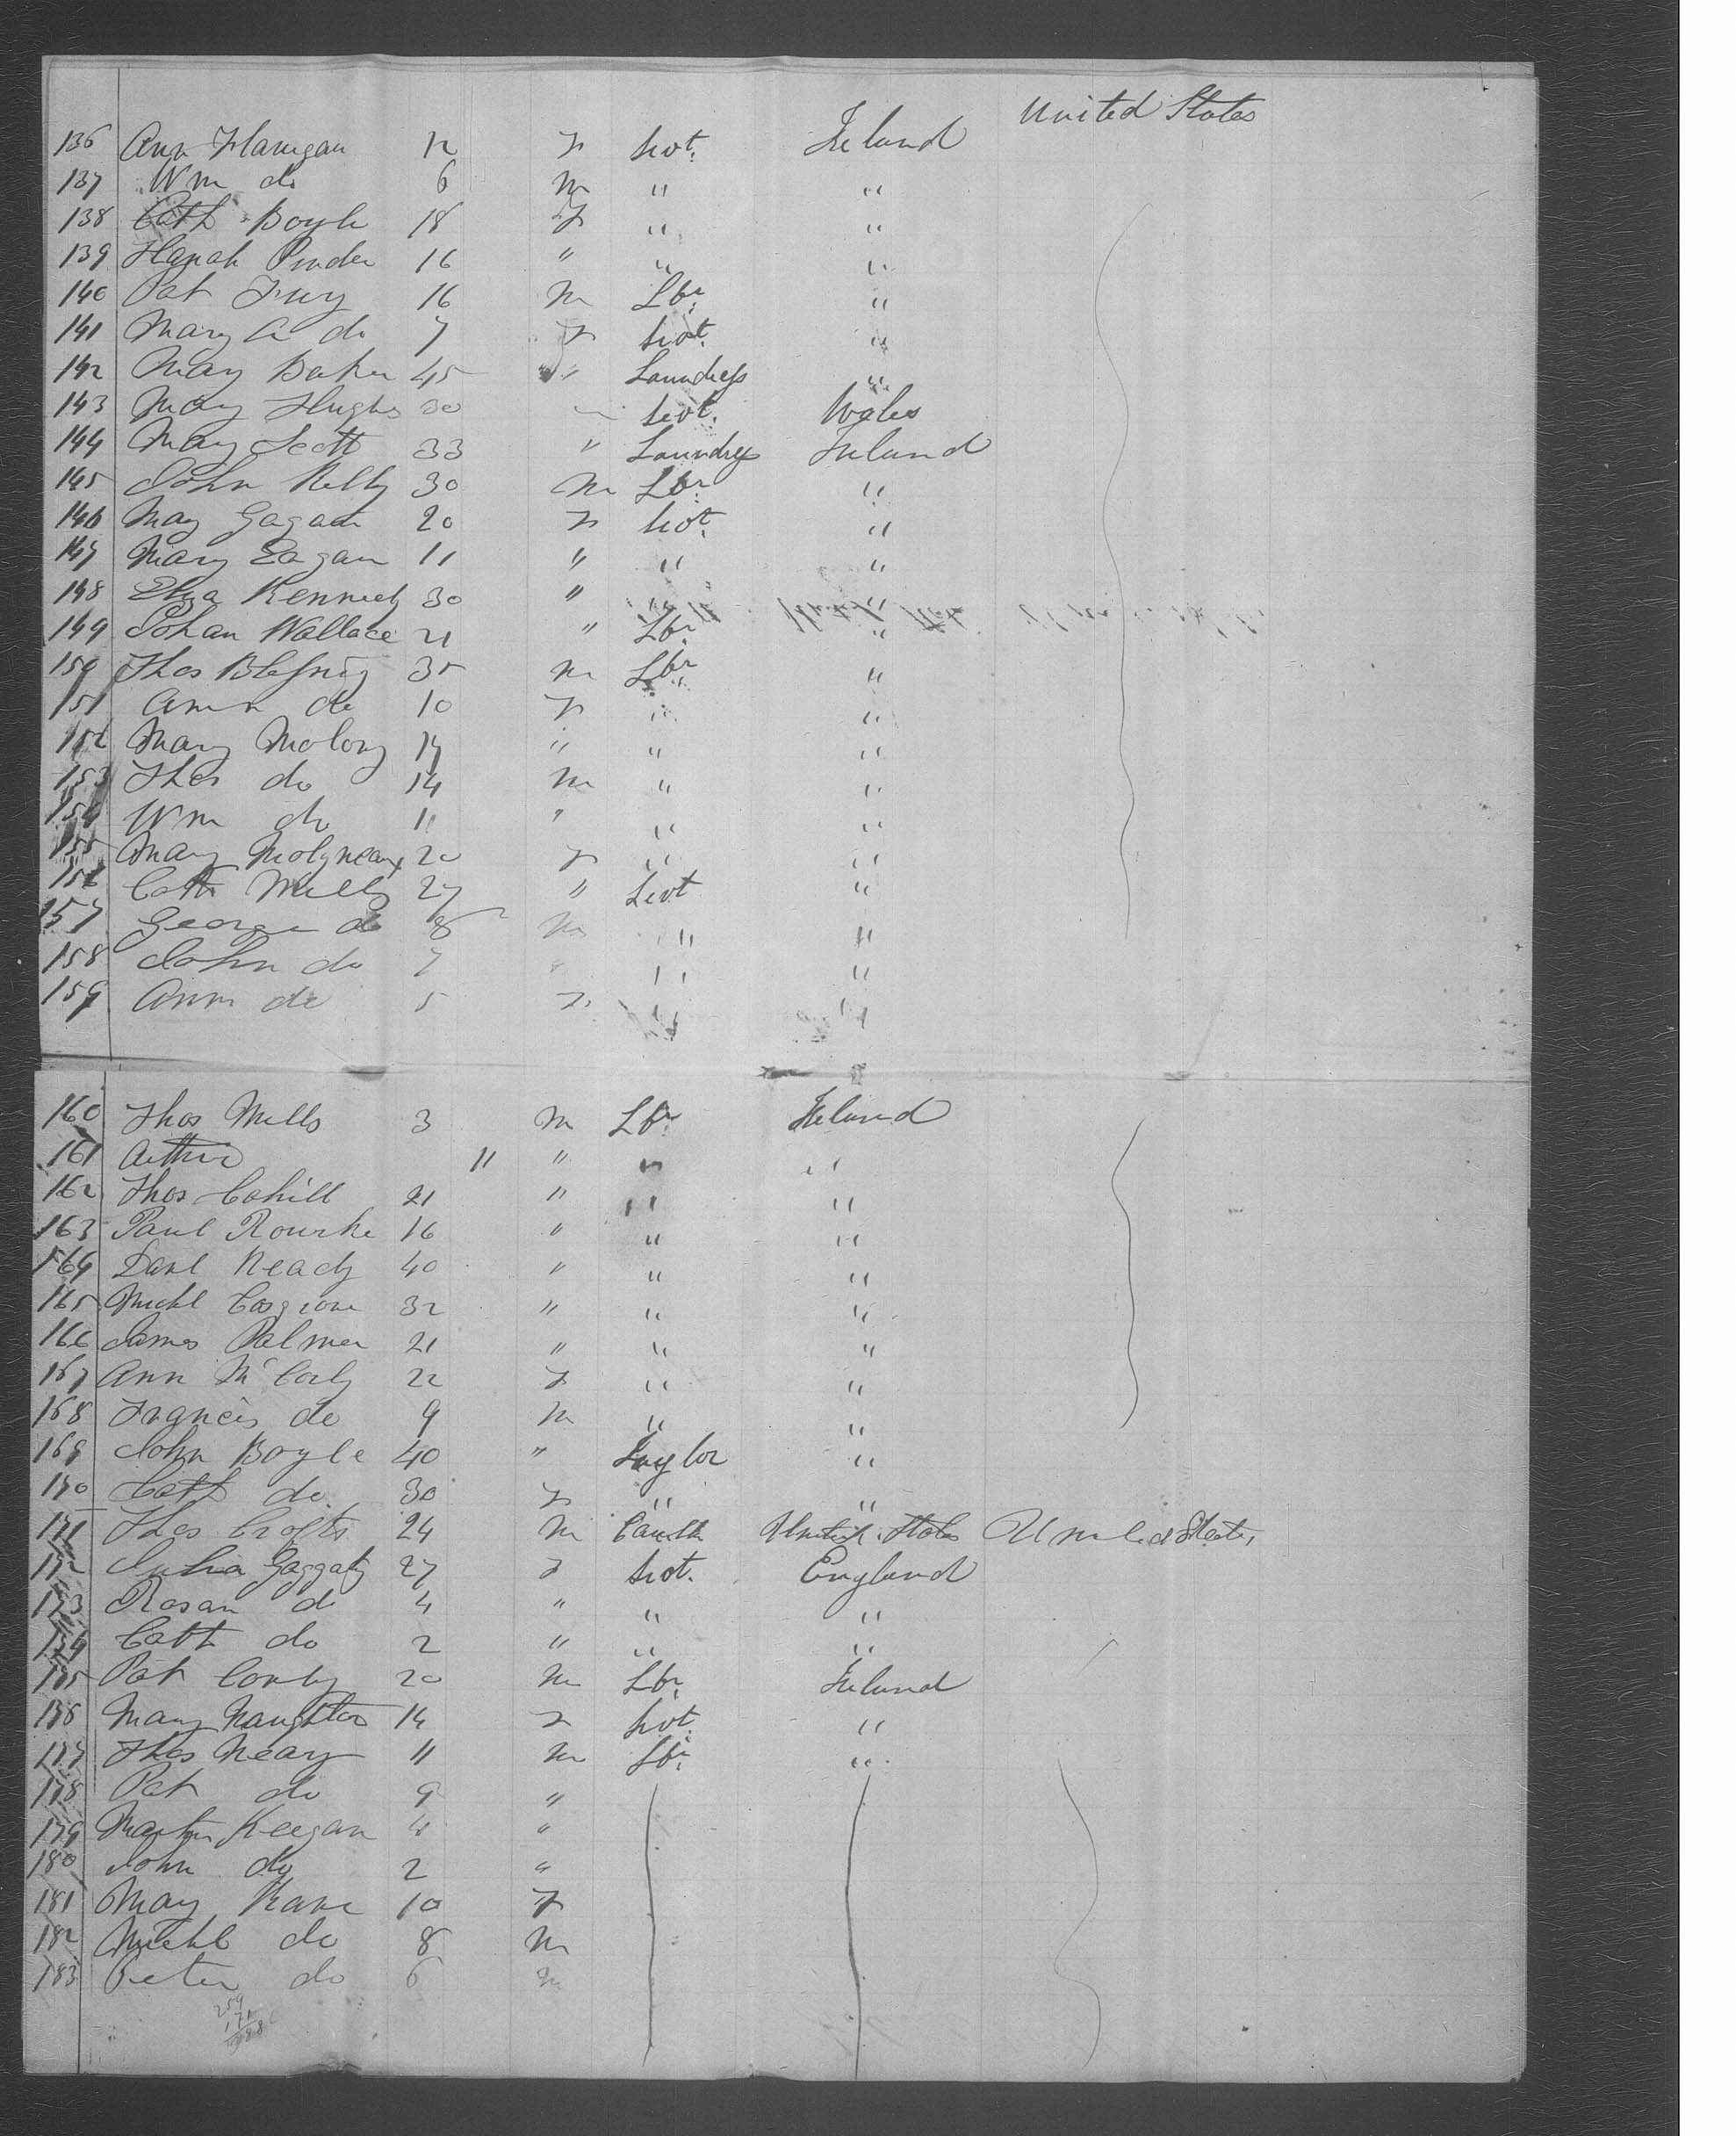 United States
136 Ann Flanigan 12 F Ireland
137 Wm do 6 M " "
138 Cath Boyle 18 F " "
139 Hanah Pinder 16 " " "
140 Pat 16 M Lbr "
141 Mary A do 7 F "
142 Mary Baker 45 " Laundress "
143 Mary Hughs 30 " Wales
144 Mary Scott 33 " Laundress Ireland
145 John Kelly 30 M Lbr "
146 May Gagan 20 F "
147 Mary Eagan 11 " " "
148 Eliza Kennedy 30 " " "
149 Johan Wallace 21 " Lbr "
150 Thos 35 M Lbr "
151 Ann do 10 F " "
152 Mary Molony 17 " " "
153 Thos do 14 M " "
154 Wm do 11 " " "
155 Mary Molyneaux 20 F " "
156 Cath Mills 27 " "
157 George do 8 M " "
158 John do 7 " " "
159 Ann do 5 F " "
160 Thos Mills 3 M Lbr Ireland
161 Arthur " " " "
162 Thos Cahill 21 " " "
163 Paul Rourke 16 " " "
164 Danl Ready 40 " " "
165 Michl Cosgrove 32 " " "
166 James Palmer 21 " " "
167 Ann 22 F " "
168 Francis do 9 M " "
169 John Boyle 40 " Taylor "
170 Cath do 30 F " "
171 Thos Crofts 24 M United States United States
172 Julia 27 F England
173 Rosan do 4 " " "
174 Cath do 2 " " "
175 Pat 20 M Lbr Ireland
176 Mary Naughton 14 F "
177 Thos Neary 11 M Lbr "
178 Pat do 9 "
179 Martin Keegan 4 "
180 John do 2 "
181 Mary Kane 10 F
182 Michl do 8 M
183 Peter do 6 M